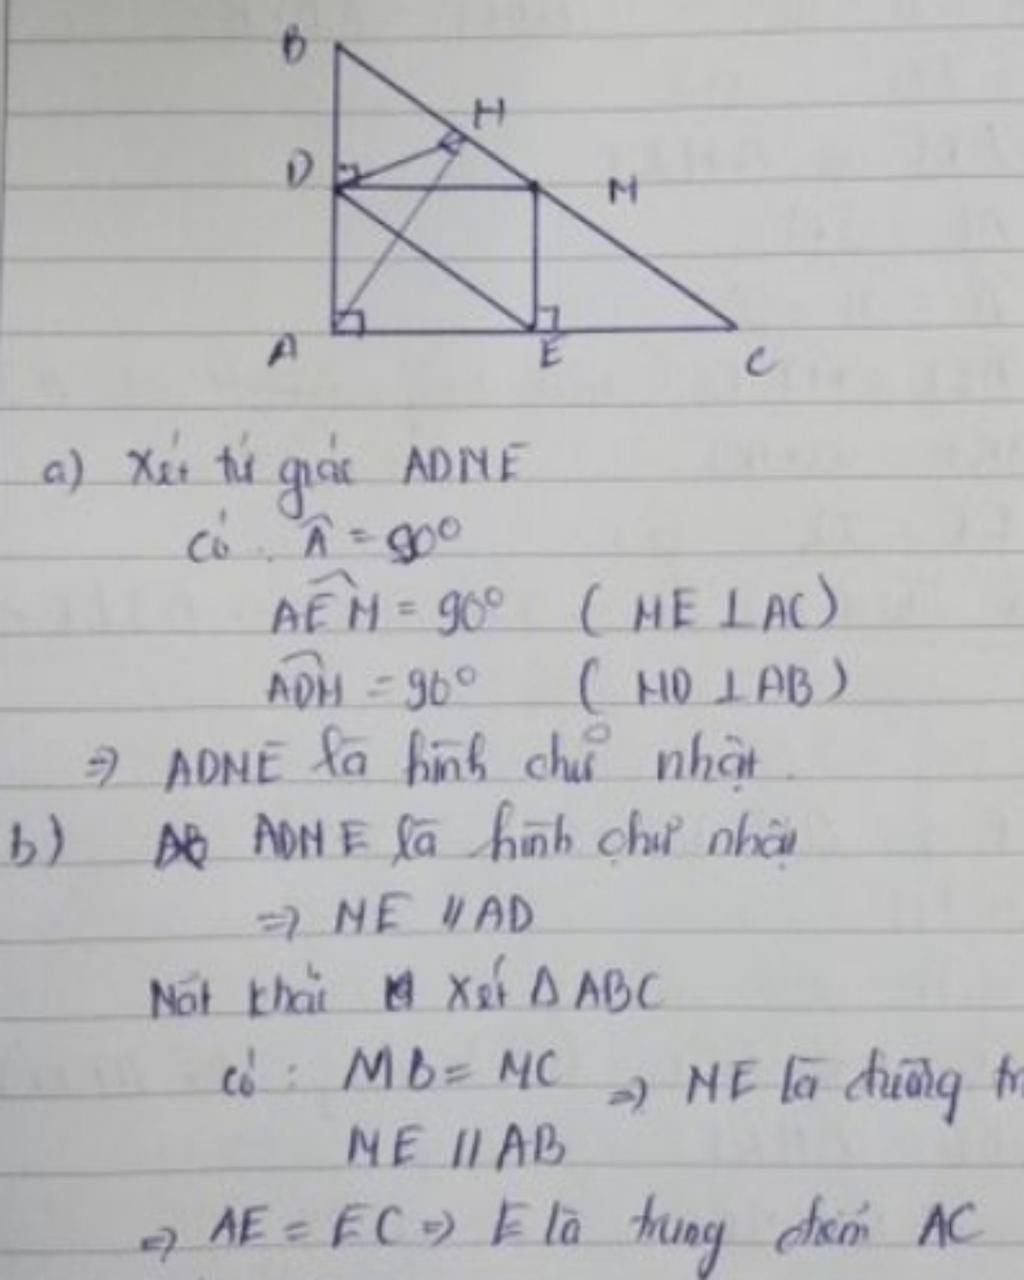 B
H
D
M
A
E
C
a) Xét tứ giác ADME
Có: Â = 90°
AÊM = 90° ( ME ⊥ AC)
ADM = 90° ( MD ⊥ AB)
=> ADME là hình chữ nhật.
b) ADME là hình chữ nhật
=> ME // AD
Mặt khác Xét Δ ABC
có: MB = MC => ME là đường
ME // AB
=> AE = EC => E là trung điểm AC